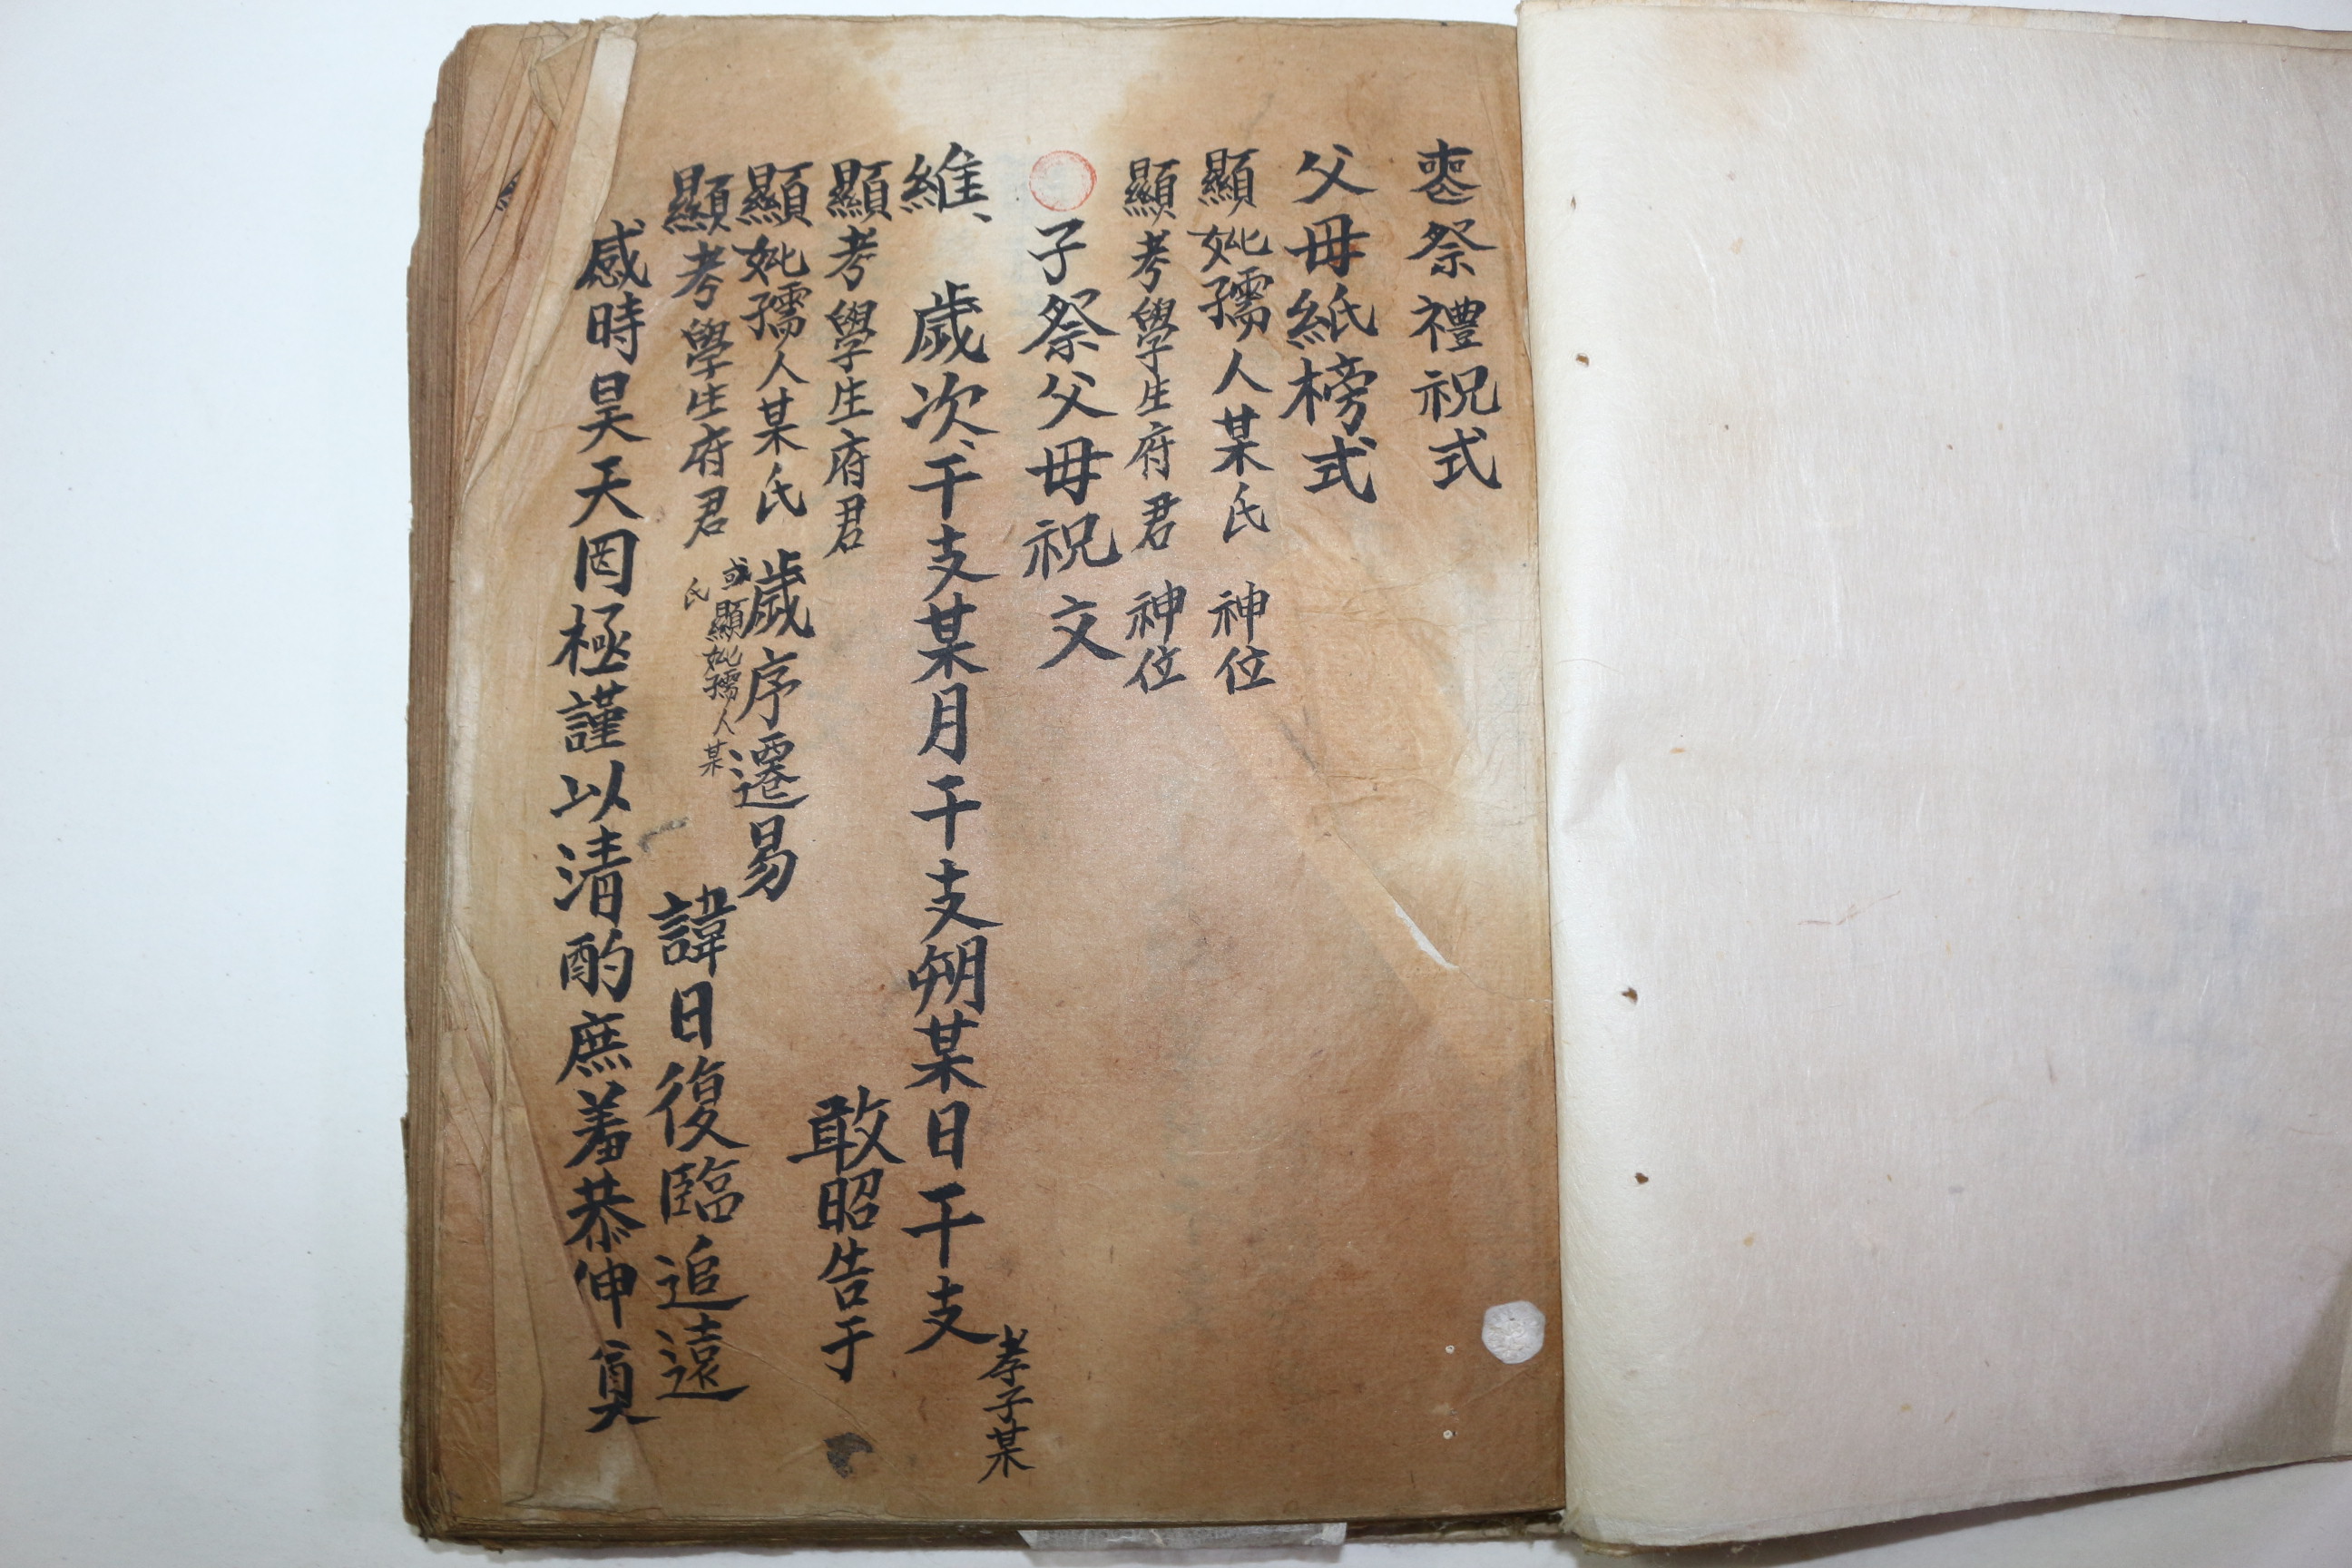 喪祭禮祝式
父母紙榜式
顯妣孺人某氏 神位
顯考學生府君 神位
子祭父母祝文
維、 歲次、干支某月干支朔某日干支
孝子某
敢昭告于
顯考學生府君
顯妣孺人某氏 歲序遷易
顯考學生府君
或顯妣孺人某
氏
諱日復臨追遠
感時昊天罔極謹以清酌庶羞恭伸奠